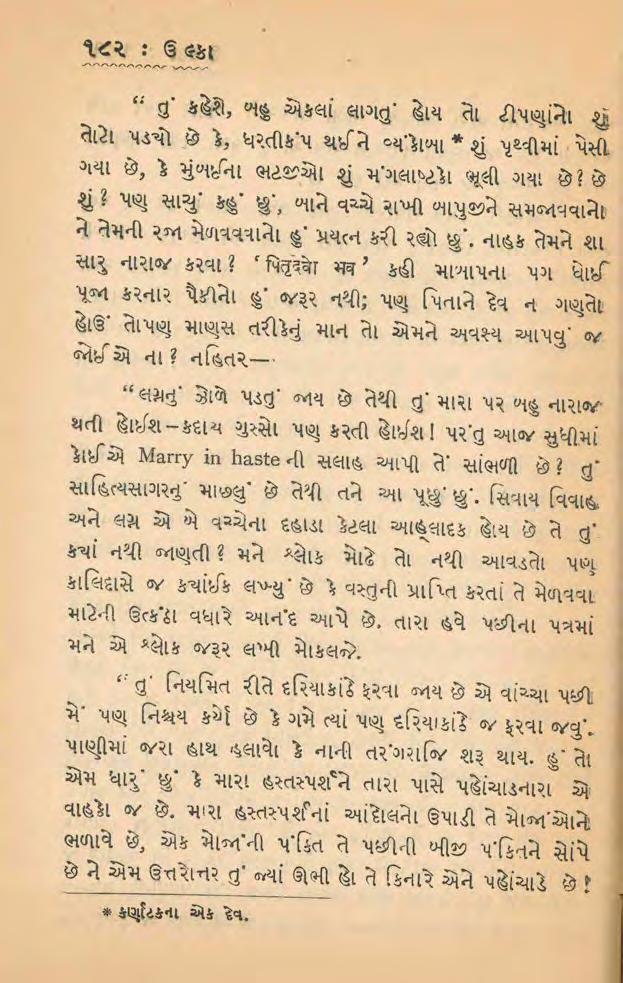 ૧૮૨ : ઉલ્કા
“ તું કહેશે, બહુ એકલાં લાગતું હોય તો ટીપણાંનો શું
તોટો પડયો છે કે, ધરતીકંપ થઈને વ્યંકોબા * શું પૃથ્વીમાં પેસી
ગયા છે, કે મુંબઈના ભટજીઓ શું મંગલાષ્ટકો ભૂલી ગયા છે? છે
શું? પણ સાચું કહું છું, બાને વચ્ચે રાખી બાપુજીને સમજાવવાનો
ને તેમની રજા મેળવવવાનો હું પ્રયત્ન કરી રહ્યો છું. નાહક તેમને શા
સારુ નારાજ કરવા? ‘ पितृदेवो भव ’ કહી માબાપના પગ ધોઈ
પૂજા કરનાર પૈકીનો હું જરૂર નથી; પણ પિતાને દેવ ન ગણતો
હોઉં તોપણ માણસ તરીકેનું માન તો એમને અવશ્ય આપવું જ
જોઈએ ના? નહિતર—
“લગ્નનું ઝોળે પડતું જાય છે તેથી તું મારા પર બહુ નારાજ
થતી હોઈશ–કદાચ ગુસ્સો પણ કરતી હોઈશ! પરંતુ આજ સુધીમાં
કોઈએ Marry in haste ની સલાહ આપી તેં સાંભળી છે? તું
સાહિત્યસાગરનું માછલું છે તેથી તને આ પૂછું છું. સિવાય વિવાહ
અને લગ્ન એ બે વચ્ચેના દહાડા કેટલા આહ્લાદક હોય છે તે તું
કયાં નથી જાણતી? મને શ્લોક મોઢે તો નથી આવડતો પણ
કાલિદાસે જ કયાંઈક લખ્યું છે કે વસ્તુની પ્રાપ્તિ કરતાં તે મેળવવા
માટેની ઉત્કંઠા વધારે આનંદ આપે છે. તારા હવે પછીના પત્રમાં
મને એ શ્લોક જરૂર લખી મોકલજે.
“ તું નિયમિત રીતે દરિયાકાંઠે ફરવા જાય છે એ વાંચ્યા પછી
મેં પણ નિશ્ચય કર્યો છે કે ગમે ત્યાં પણ દરિયાકાંઠે જ ફરવા જવું.
પાણીમાં જરા હાથ હલાવો કે નાની તરંગરાજિ શરૂ થાય. હું તો
એમ ધારું છું કે મારા હસ્તસ્પર્શને તારા પાસે પહોંચાડનારા એ
વાહકો જ છે. મારા હસ્તસ્પર્શનાં આંદોલનો ઉપાડી તે મોજાંઓને
ભળાવે છે, એક મોજાંની પંકિત તે પછીની બીજી પંકિતને સોંપે
છે ને એમ ઉત્તરોત્તર તું જ્યાં ઊભી હો તે કિનારે એને પહોંચાડે છે!
* કર્ણાટકના એક દેવ.